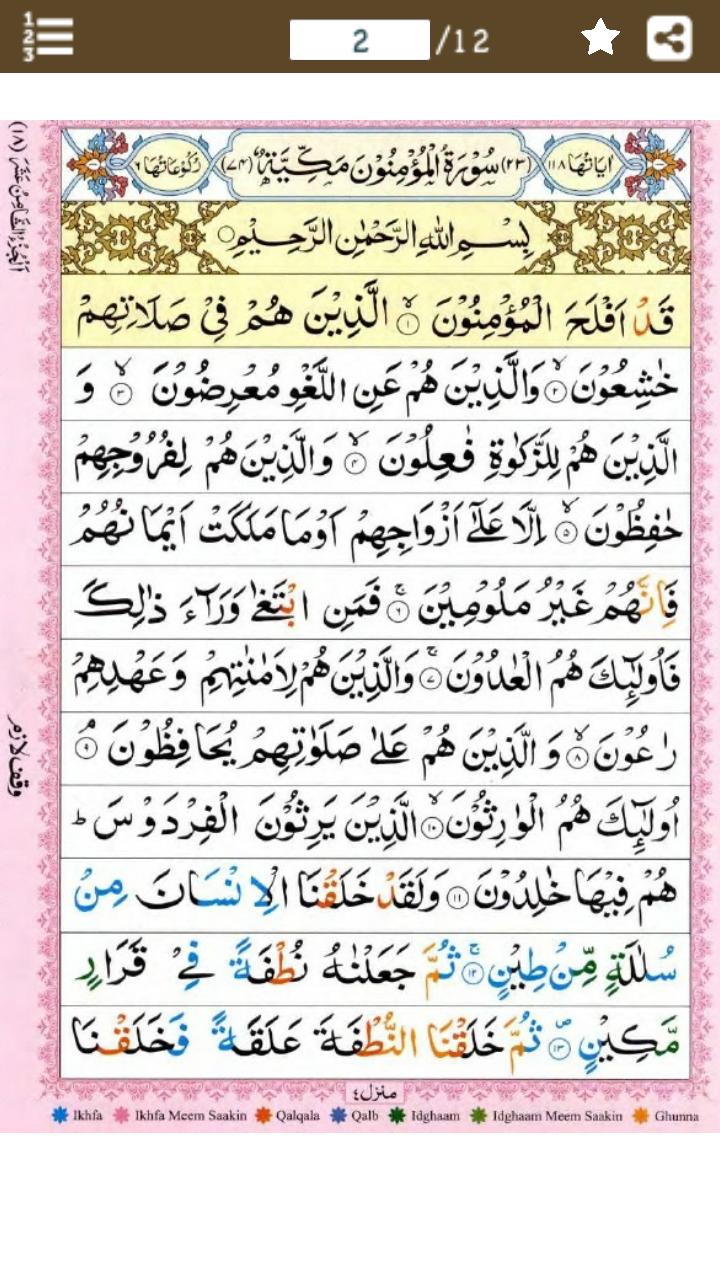 1
2
3
2 /12
اٰیَاتُهَا ١١٨ (٢٣) سُوْرَةُ الْمُؤْمِنُوْنَ مَكِّيَّةٌ (٧٤) رُكُوْعَاتُهَا ٦
بِسْمِ اللهِ الرَّحْمٰنِ الرَّحِيْمِ
قَدْ اَفْلَحَ الْمُؤْمِنُوْنَ ۙ﴿١﴾ الَّذِيْنَ هُمْ فِیْ صَلَاتِهِمْ
خٰشِعُوْنَ ۙ﴿٢﴾ وَالَّذِيْنَ هُمْ عَنِ اللَّغْوِ مُعْرِضُوْنَ ۙ﴿٣﴾ وَ
الَّذِيْنَ هُمْ لِلزَّكٰوةِ فٰعِلُوْنَ ۙ﴿٤﴾ وَالَّذِيْنَ هُمْ لِفُرُوْجِهِمْ
حٰفِظُوْنَ ۙ﴿٥﴾ اِلَّا عَلٰۤى اَزْوَاجِهِمْ اَوْ مَا مَلَكَتْ اَيْمَانُهُمْ
فَاِنَّهُمْ غَيْرُ مَلُوْمِيْنَ ۚ﴿٦﴾ فَمَنِ ابْتَغٰى وَرَآءَ ذٰلِكَ
فَاُولٰٓئِكَ هُمُ الْعٰدُوْنَ ۚ﴿٧﴾ وَالَّذِيْنَ هُمْ لِاَمٰنٰتِهِمْ وَعَهْدِهِمْ
رٰعُوْنَ ۙ﴿٨﴾ وَالَّذِيْنَ هُمْ عَلٰى صَلَوٰتِهِمْ يُحَافِظُوْنَ ۘ﴿٩﴾
اُولٰٓئِكَ هُمُ الْوٰرِثُوْنَ ۙ﴿١٠﴾ الَّذِيْنَ يَرِثُوْنَ الْفِرْدَوْسَ ؕ
هُمْ فِيْهَا خٰلِدُوْنَ ﴿١١﴾ وَلَقَدْ خَلَقْنَا الْاِنْسَانَ مِنْ
سُلٰلَةٍ مِّنْ طِيْنٍ ۚ﴿١٢﴾ ثُمَّ جَعَلْنٰهُ نُطْفَةً فِیْ قَرَارٍ
مَّكِيْنٍ ۪﴿١٣﴾ ثُمَّ خَلَقْنَا النُّطْفَةَ عَلَقَةً فَخَلَقْنَا
اَلْجُزْءُ الثَّامِنُ عَشَرَ (١٨)
وقف لازم
منزل ٤
Ikhfa Ikhfa Meem Saakin Qalqala Qalb Idghaam Idghaam Meem Saakin Ghunna